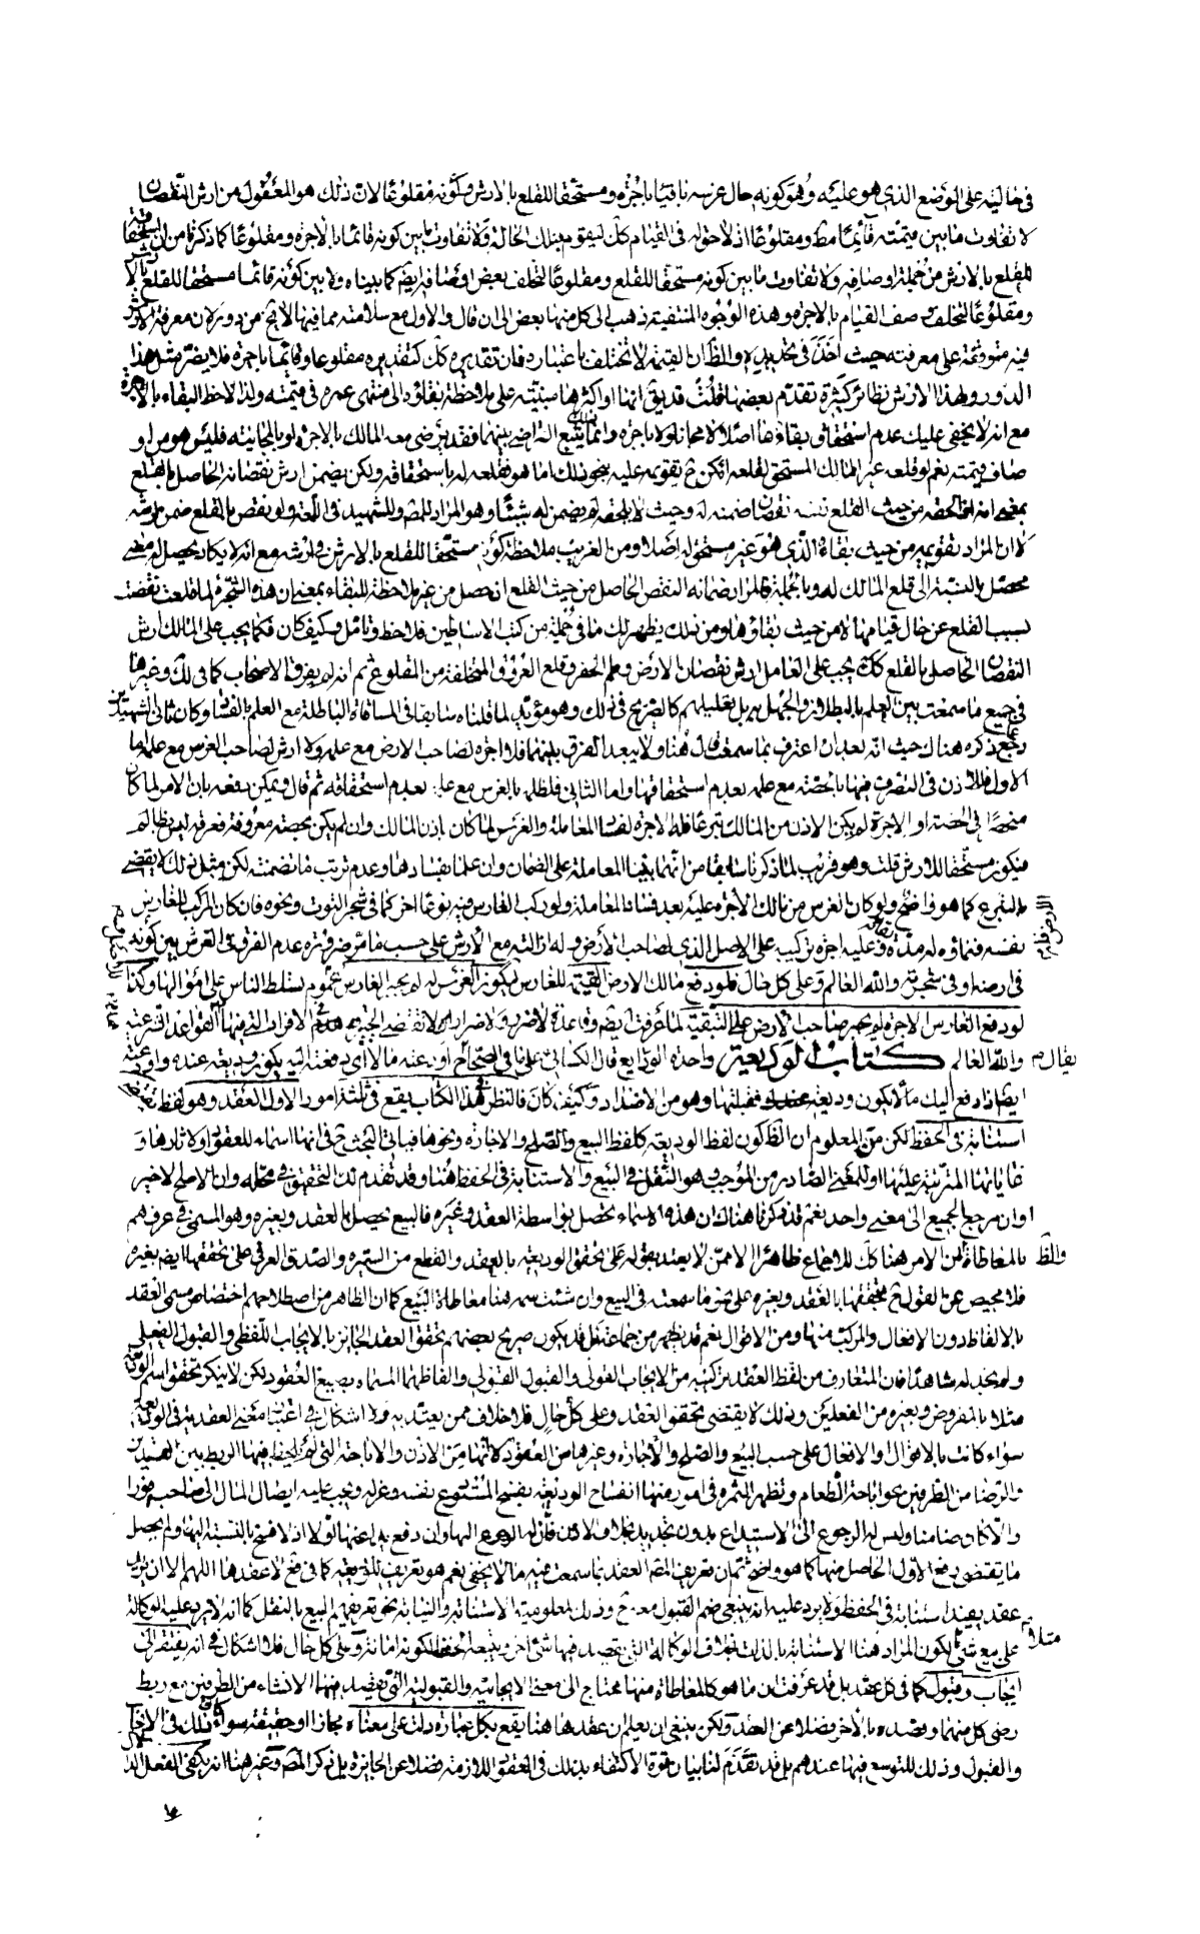 في حالته على الوضع الذي هو عليه وهو كونه حال غرسه باقيا باجرة ومستحقا للقلع بالارش وكونه مقلوعا لان ذلك هو المعقول من ارش النقصان
لا تفاوت ما بين قيمته قائما مط ومقلوعا اذ لا حق له في القيام كك ليقوم بتلك الحالة ولا تفاوت ما بين كونه قائما بالاجرة ومقلوعا كما ذكرنا من ان استحقاقه
للقلع بالارش من جملة اوصافه ولا تفاوت ما بين كونه مستحقا للقلع ومقلوعا لتخلف بعض اوصافه ايضم كما بيناه ولا بين كونه قائما مستحقا للقلع بالارش
ومقلوعا لتخلف وصف القيام بالاجرة وهذه الوجوه المنتفية ذهب الى كل منها بعض الى ان قال والاول مع سلامته مما فيها لا يخ من دور لان معرفة الارش
فيه متوقفة على معرفته حيث اخذ في تحديده والظ ان القيمة لا تختلف باعتباره فان تقديره كك كتقديره مقلوعا وقائما باجرة فلا يضر مثل هذا
الدور ولهذا الارش نظائر كثيرة تقدم بعضها قلت قد يق انها او اكثرها مبنية على ملاحظة بقاؤه الى منتهى عمره في قيمته ولذا لاحظ البقاء بالاجرة
مع انه لا يخفى عليك عدم استحقاق بقاءها اصلا لا مجانا ولا باجرة وانما ذلك يتبع التراضي بينهما فقد يرضى معه المالك بالاجرة او بالمجانية فليس هو من او
صاف قيمته نعم لو قلعه غير المالك المستحق لقلعه امكن ح تقويمه عليه بنحو ذلك اما هو فقلعه له باستحقاقه ولكن يضمن ارش نقصانه الحاصل بالقلع
بمعنى انه ان لحقه من حيث القلع نفسه نقصان ضمنه له وحيث لا يلحقه لم يضمن له شيئا وهو المراد للمص وللشهيد في اللمعة ولو نقص بالقلع ضمن ارشه
لا ان المراد تقويمه من حيث بقاءه الذي هو غير مستحق له اصلا ومن الغريب ملاحظة كونه مستحقا للقلع بالارش في ارشه مع انه لا يكاد يحصل له معنى
محصل بالنسبة الى قلع المالك له وبالجملة فالمراد ضمانه النقص الحاصل من حيث القلع ان حصل من غير ملاحظة للبقاء بمعنى ان هذه الشجرة لما قلعت نقصت
بسبب القلع عن حال قيامها لا من حيث بقاؤها ومن ذلك يظهر لك ما في جملة من كتب الاساطين فلاحظ وتامل وكيف كان فكما يجب على المالك ارش
النقصان الحاصل بالقلع كك يجب على العامل ارش نقصان الارض وطم الحفر وقلع العروق المتخلفة من المقلوع ثم انه لم يفرق الاصحاب كما في لك وغيرها
في جميع ما سمعت بين العلم بالبطلان والجهل به بل تعليلهم كالصريح في ذلك وهو مؤيد لما قلناه سابقا في المساقاة الباطلة مع العلم بالفساد وكان ثاني الشهيدين
رجع عما ذكره هناك حيث انه بعد ان اعترف بما سمعت قال هنا ولا يبعد الفرق بينهما فلا اجرة لصاحب الارض مع علمه ولا ارش لصاحب الغرس مع علمه اما
الاول فللاذن في التصرف فيها بالحصة مع علمه بعدم استحقاقها واما الثاني فلظلمه بالغرس مع علمه بعدم استحقاقه ثم قال ويمكن دفعه بان الامر لما كان
منحصرا في الحصة او الاجرة لم يكن الاذن من المالك تبرعا فله الاجرة لفساد المعاملة والغرس لما كان باذن المالك وان لم يكن بحصته معروفة فعرقه ليس بظالم
فيكون مستحقا للارش قلت وهو قريب لما ذكرنا سابقا من انهما بنيا المعاملة على الضمان وان علما بفسادها وعدم ترتب ما تضمنته لكن مثل ذلك لا يقضي
بالتبرع كما هو واضح ولو كان الغرس من مالك الارض فعليه اجرة عمل الغارس
نفسه فنماؤه له
في ارضه او في شجرته والله العالم وعلى كل حال فلو دفع مالك الارض القيمة للغارس ليكون الغرس له لم يجبر الغارس لعموم تسلط الناس على اموالها وكذا
لو دفع الغارس الاجرة لم يجبر صاحب الارض على التبقية لما عرفت ايضم وقاعدة لا ضرر ولا ضرار لا تقتضي الجبر
والله العالم كتاب الوديعة واحدة الودائع قال الكسائي على ما في الصحاح اودعته مالا اي دفعته اليه يكون وديعة عنده واودعته
ايضا اذا دفع اليك مالا يكون وديعة عندك فقبلتها وهو من الاضداد وكيف كان فالنظر في هذا الكتاب يقع في ثلثة امور الاول العقد وهو لفظ يفيد
استنابة في الحفظ لكن من المعلوم ان الظ كون لفظ الوديعة كلفظ البيع والصلح والاجارة ونحوها فياتي البحث ح في انها اسماء للعقود او لاثارها و
غاياتها المترتبة عليها او للمعنى الصادر من الموجب وهو النقل في البيع والاستنابة في الحفظ هنا وقد تقدم لك التحقيق في محله وان الاصح الاخير
او ان مرجع الجميع الى معنى واحد نعم قد ذكرنا هناك ان هذه الاسماء تحصل بواسطة العقد وغيره فالبيع يحصل بالعقد وبغيره وهو المسمى في عرفهم
بالمعاطاة والظ ان الامر هنا كك للاجماع ظاهرا الا ممن لا يعتد بقوله على تحقق الوديعة بالعقد والقطع من السيرة والصدق العرفي على تحققها ايضم بغيره
فلا محيص عن القول ح بتحققها بالعقد وبغيره على نحو ما سمعته في البيع وان شئت سمه هنا معاطاة البيع كما ان الظاهر من اصطلاحهم اختصاص مسمى العقد
بالالفاظ دون الافعال والمركب منها ومن الاقوال نعم قد يظهر من جماعة بل قد يكون صريح بعضهم تحقق العقد الجائز بالايجاب اللفظي والقبول الفعلي
ولم نجد له شاهدا فان المتعارف من لفظ العقد تركبه من الايجاب القولي والقبول القولي والفاظهما المسماة بصيغ العقود لكن لا ينكر تحقق اسم الوديعة
مثلا بالمفروض وبغيره من الفعلين وذلك لا يقتضي تحقق العقد وعلى كل حال فلا خلاف ممن يعتد به ولا اشكال في اعتبار معنى العقدية في الوديعة
سواء كانت بالاقوال والافعال على حسب البيع والصلح والاجارة وغيرها من العقود لا انها من الاذن والاباحة التي لم يلحظ فيها الربط بين القصدين
والرضا من الطرفين نحو اباحة الطعام وتظهر الثمرة في امور منها انفساخ الوديعة بفسخ المستودع نفسه وعزله ويجب عليه ايصال المال الى صاحبه فورا
والا كان ضامنا وليس له الرجوع الى الاستيداع بدون تجديد بخلاف الاذن فان له الرجوع اليها وان دفع يده عنها اولا اذ لا فسخ بالنسبة اليها ولم يحصل
ما يقتضي رفع الاول الحاصل منها كما هو واضح ثم ان تعريف المص العقد بما سمعت فيه ما لا يخفى نعم هو تعريف للوديعة كما في فع لا عقدها اللهم الا ان يريد
عقد يفيد استنابة في الحفظ ولا يرد عليه انه ينبغي ضم القبول معه ح وذلك لمعلومية الاستنابة والنيابة نحو تعريفهم البيع بالنقل كما انه لا يرد عليه الوكالة
مثلا على بيع شئ لكون المراد هنا الاستنابة بالذات بخلاف الوكالة التي تقصد فيها شئ اخر ويتبعه الحفظ لكونه امانة وعلى كل حال فلا اشكال في انه يفتقر الى
ايجاب وقبول كما في كل عقد بل قد عرفت ان ما هو كالمعاطاة منها محتاج الى معنى الايجابية والقبولية التي يقصد منها الانشاء من الطرفين مع ربط
رضى كل منهما وقصده بالاخر فضلا عن العقد ولكن ينبغي ان يعلم ان عقدها هنا يقع بكل عبارة دلت على معناه مجازا او حقيقة سواء كان ذلك في الايجاب
والقبول وذلك للتوسع فيها عندهم بل قد تقدم لنا بيان قوة الاكتفاء بذلك في العقود اللازمة فضلا عن الجائزة بل ذكر المص وغيره هنا انه يكفي الفعل الدال